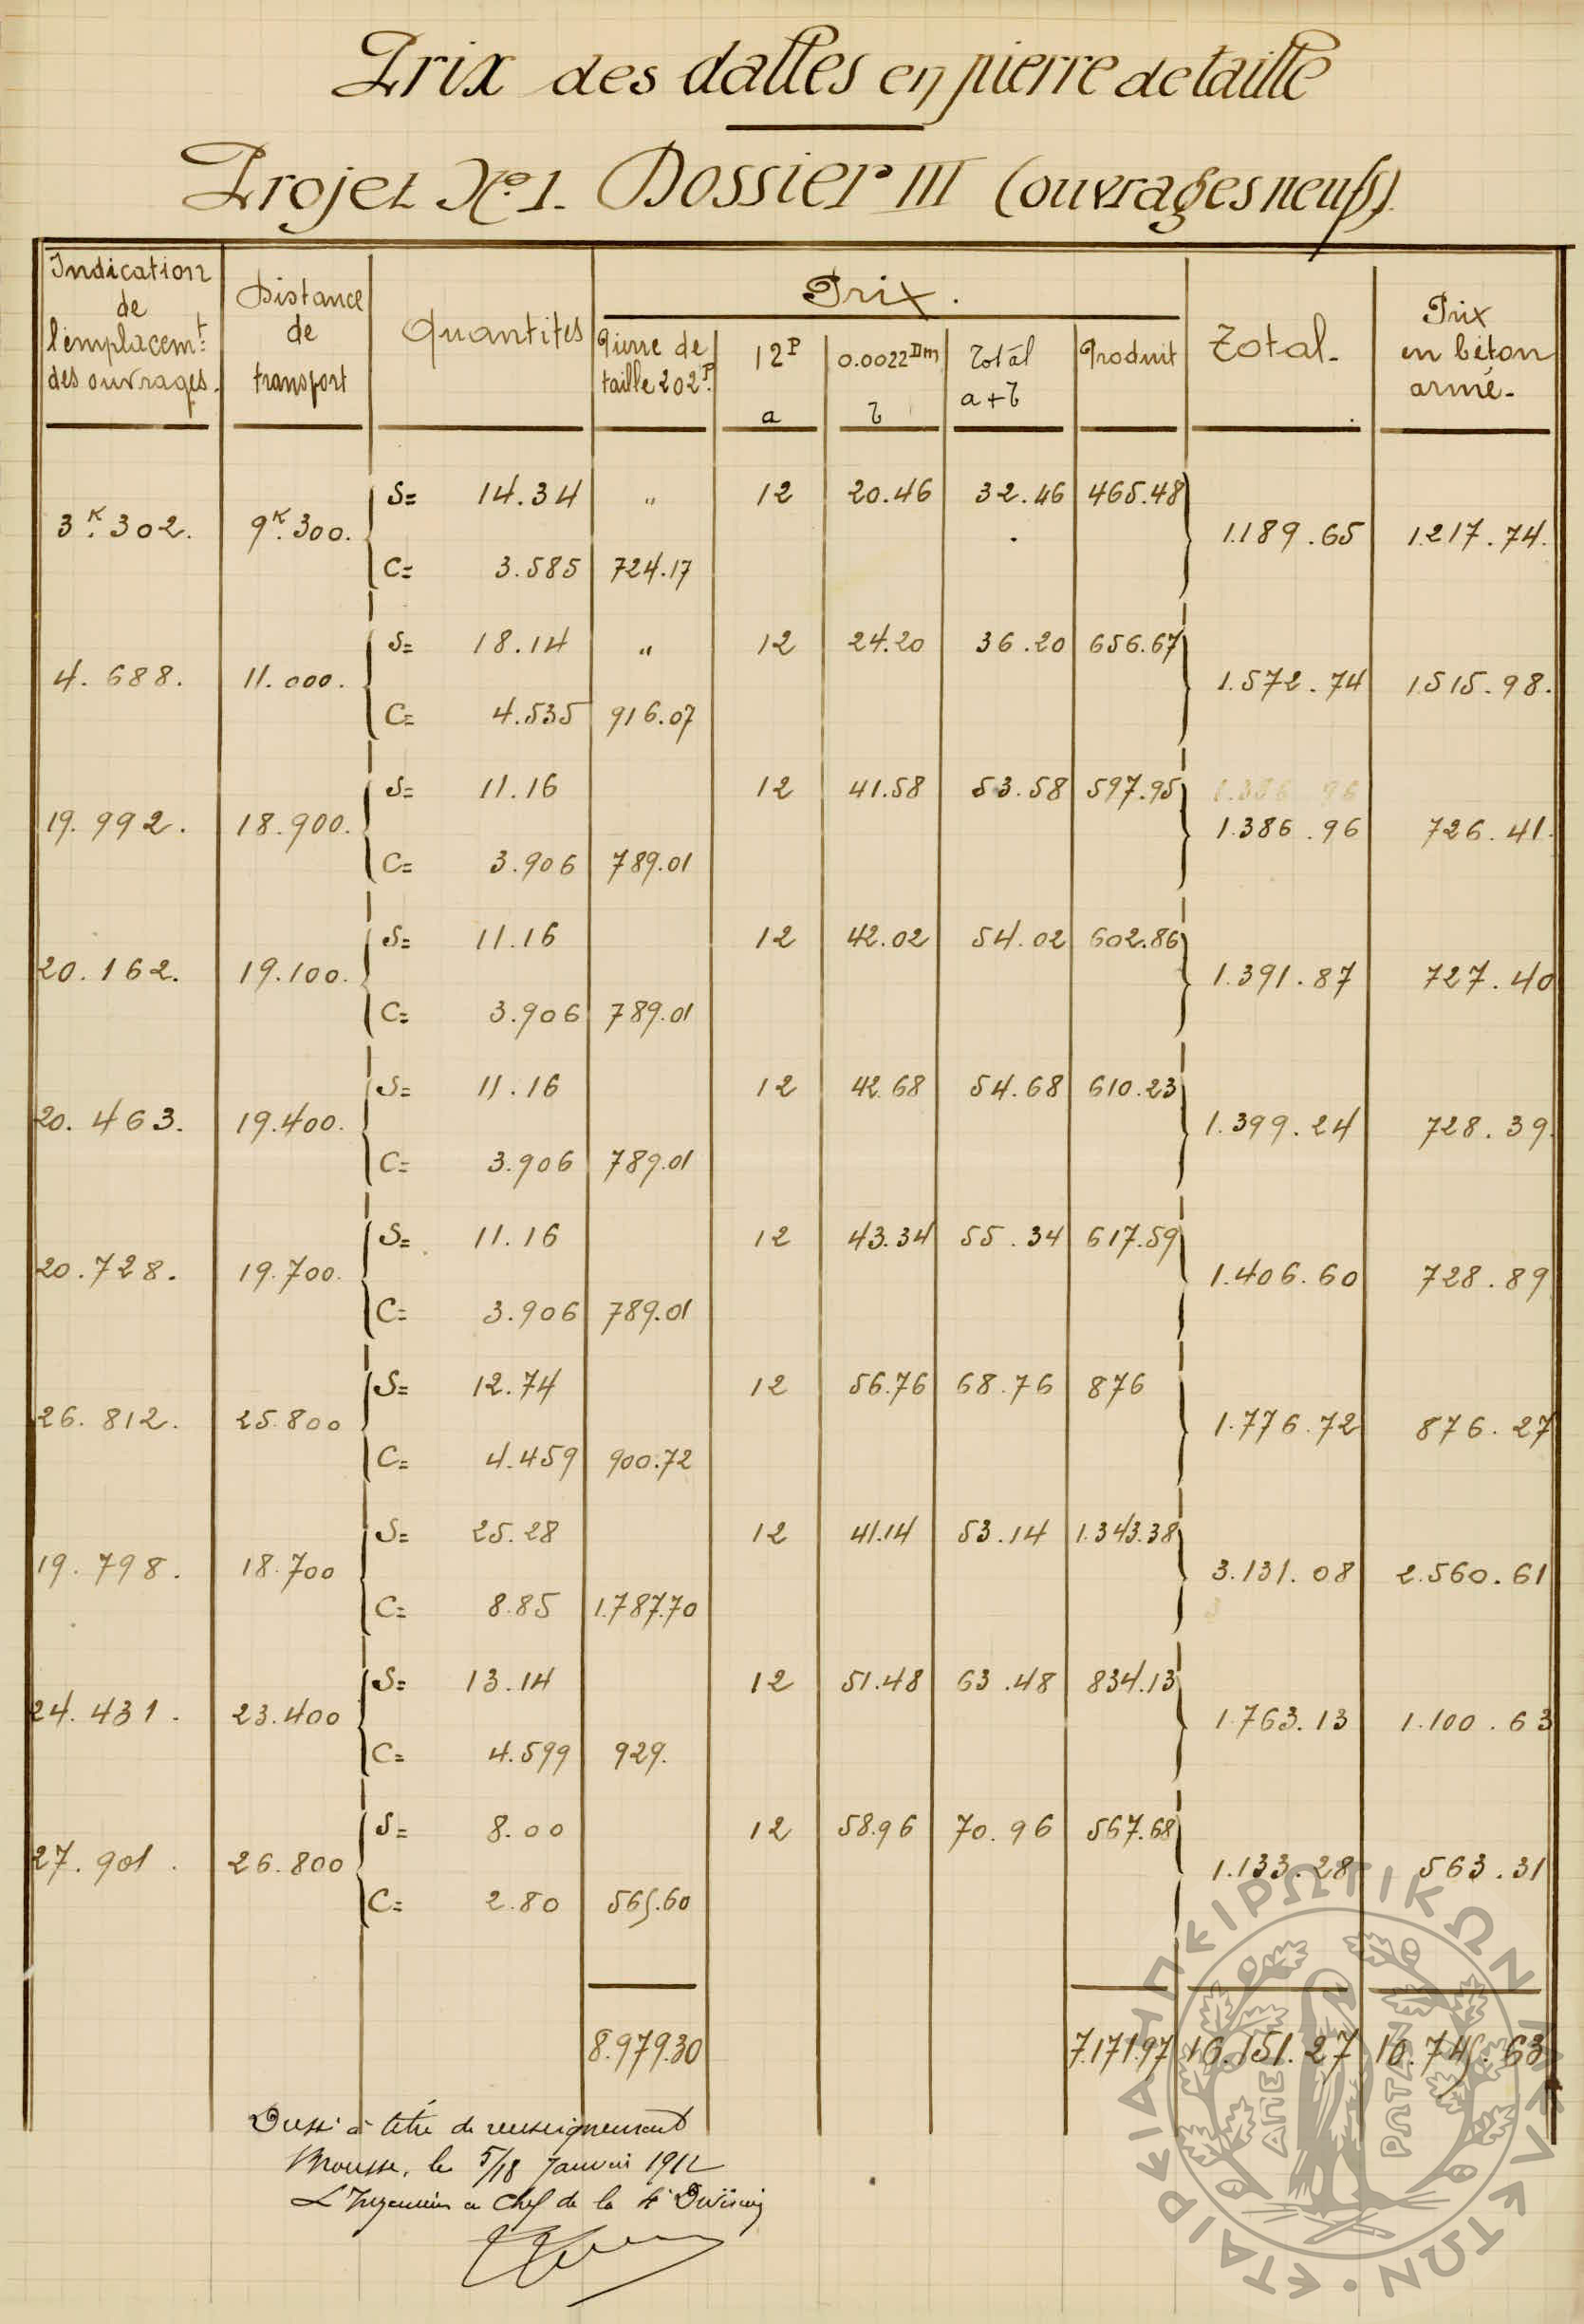 Prix des dalles en pierre de taille
Projet No. 1. Dossier III (ouvrages neufs)
Indication de l'emplacemt. des ouvrages. | Distance de transport | Quantités | Prix. | Total. | Prix en béton armé.
Pierre de taille 202P. | 12P a | 0.0022Dm b | Total a+b | Produit
S= 14.34 " 12 20.46 32.46 465.48
3K.302. 9K.300. 1.189.65 1.217.74.
C= 3.585 724.17
S= 18.14 " 12 24.20 36.20 656.67
4.688. 11.000. 1.572.74 1.515.98.
C= 4.535 916.07
S= 11.16 12 41.58 53.58 597.95
19.992. 18.900. 1.386.96 726.41.
C= 3.906 789.01
S= 11.16 12 42.02 54.02 602.86
20.162. 19.100. 1.391.87 727.40
C= 3.906 789.01
S= 11.16 12 42.68 54.68 610.23
20.463. 19.400. 1.399.24 728.39.
C= 3.906 789.01
S= 11.16 12 43.34 55.34 617.59
20.728. 19.700. 1.406.60 728.89
C= 3.906 789.01
S= 12.74 12 56.76 68.76 876
26.812. 25.800 1.776.72 876.27
C= 4.459 900.72
S= 25.28 12 41.14 53.14 1.343.38
19.798. 18.700 3.131.08 2.560.61
C= 8.85 1.787.70
S= 13.14 12 51.48 63.48 834.13
24.431. 23.400 1.763.13 1.100.63
C= 4.599 929.
S= 8.00 12 58.96 70.96 567.68
27.901. 26.800 1.133.28 563.31
C= 2.80 565.60
8.979.30 7.171.97 16.151.27 10.745.63
à titre de renseignement
le 5/18 Janvier 1912
L'Ingénieur en Chef de la 4e Division
ΕΤΑΙΡΕΙΑ ΗΠΕΙΡΩΤΙΚΩΝ ΜΕΛΕΤΩΝ
ΑΠΕΙ
ΡΩΤΑΝ